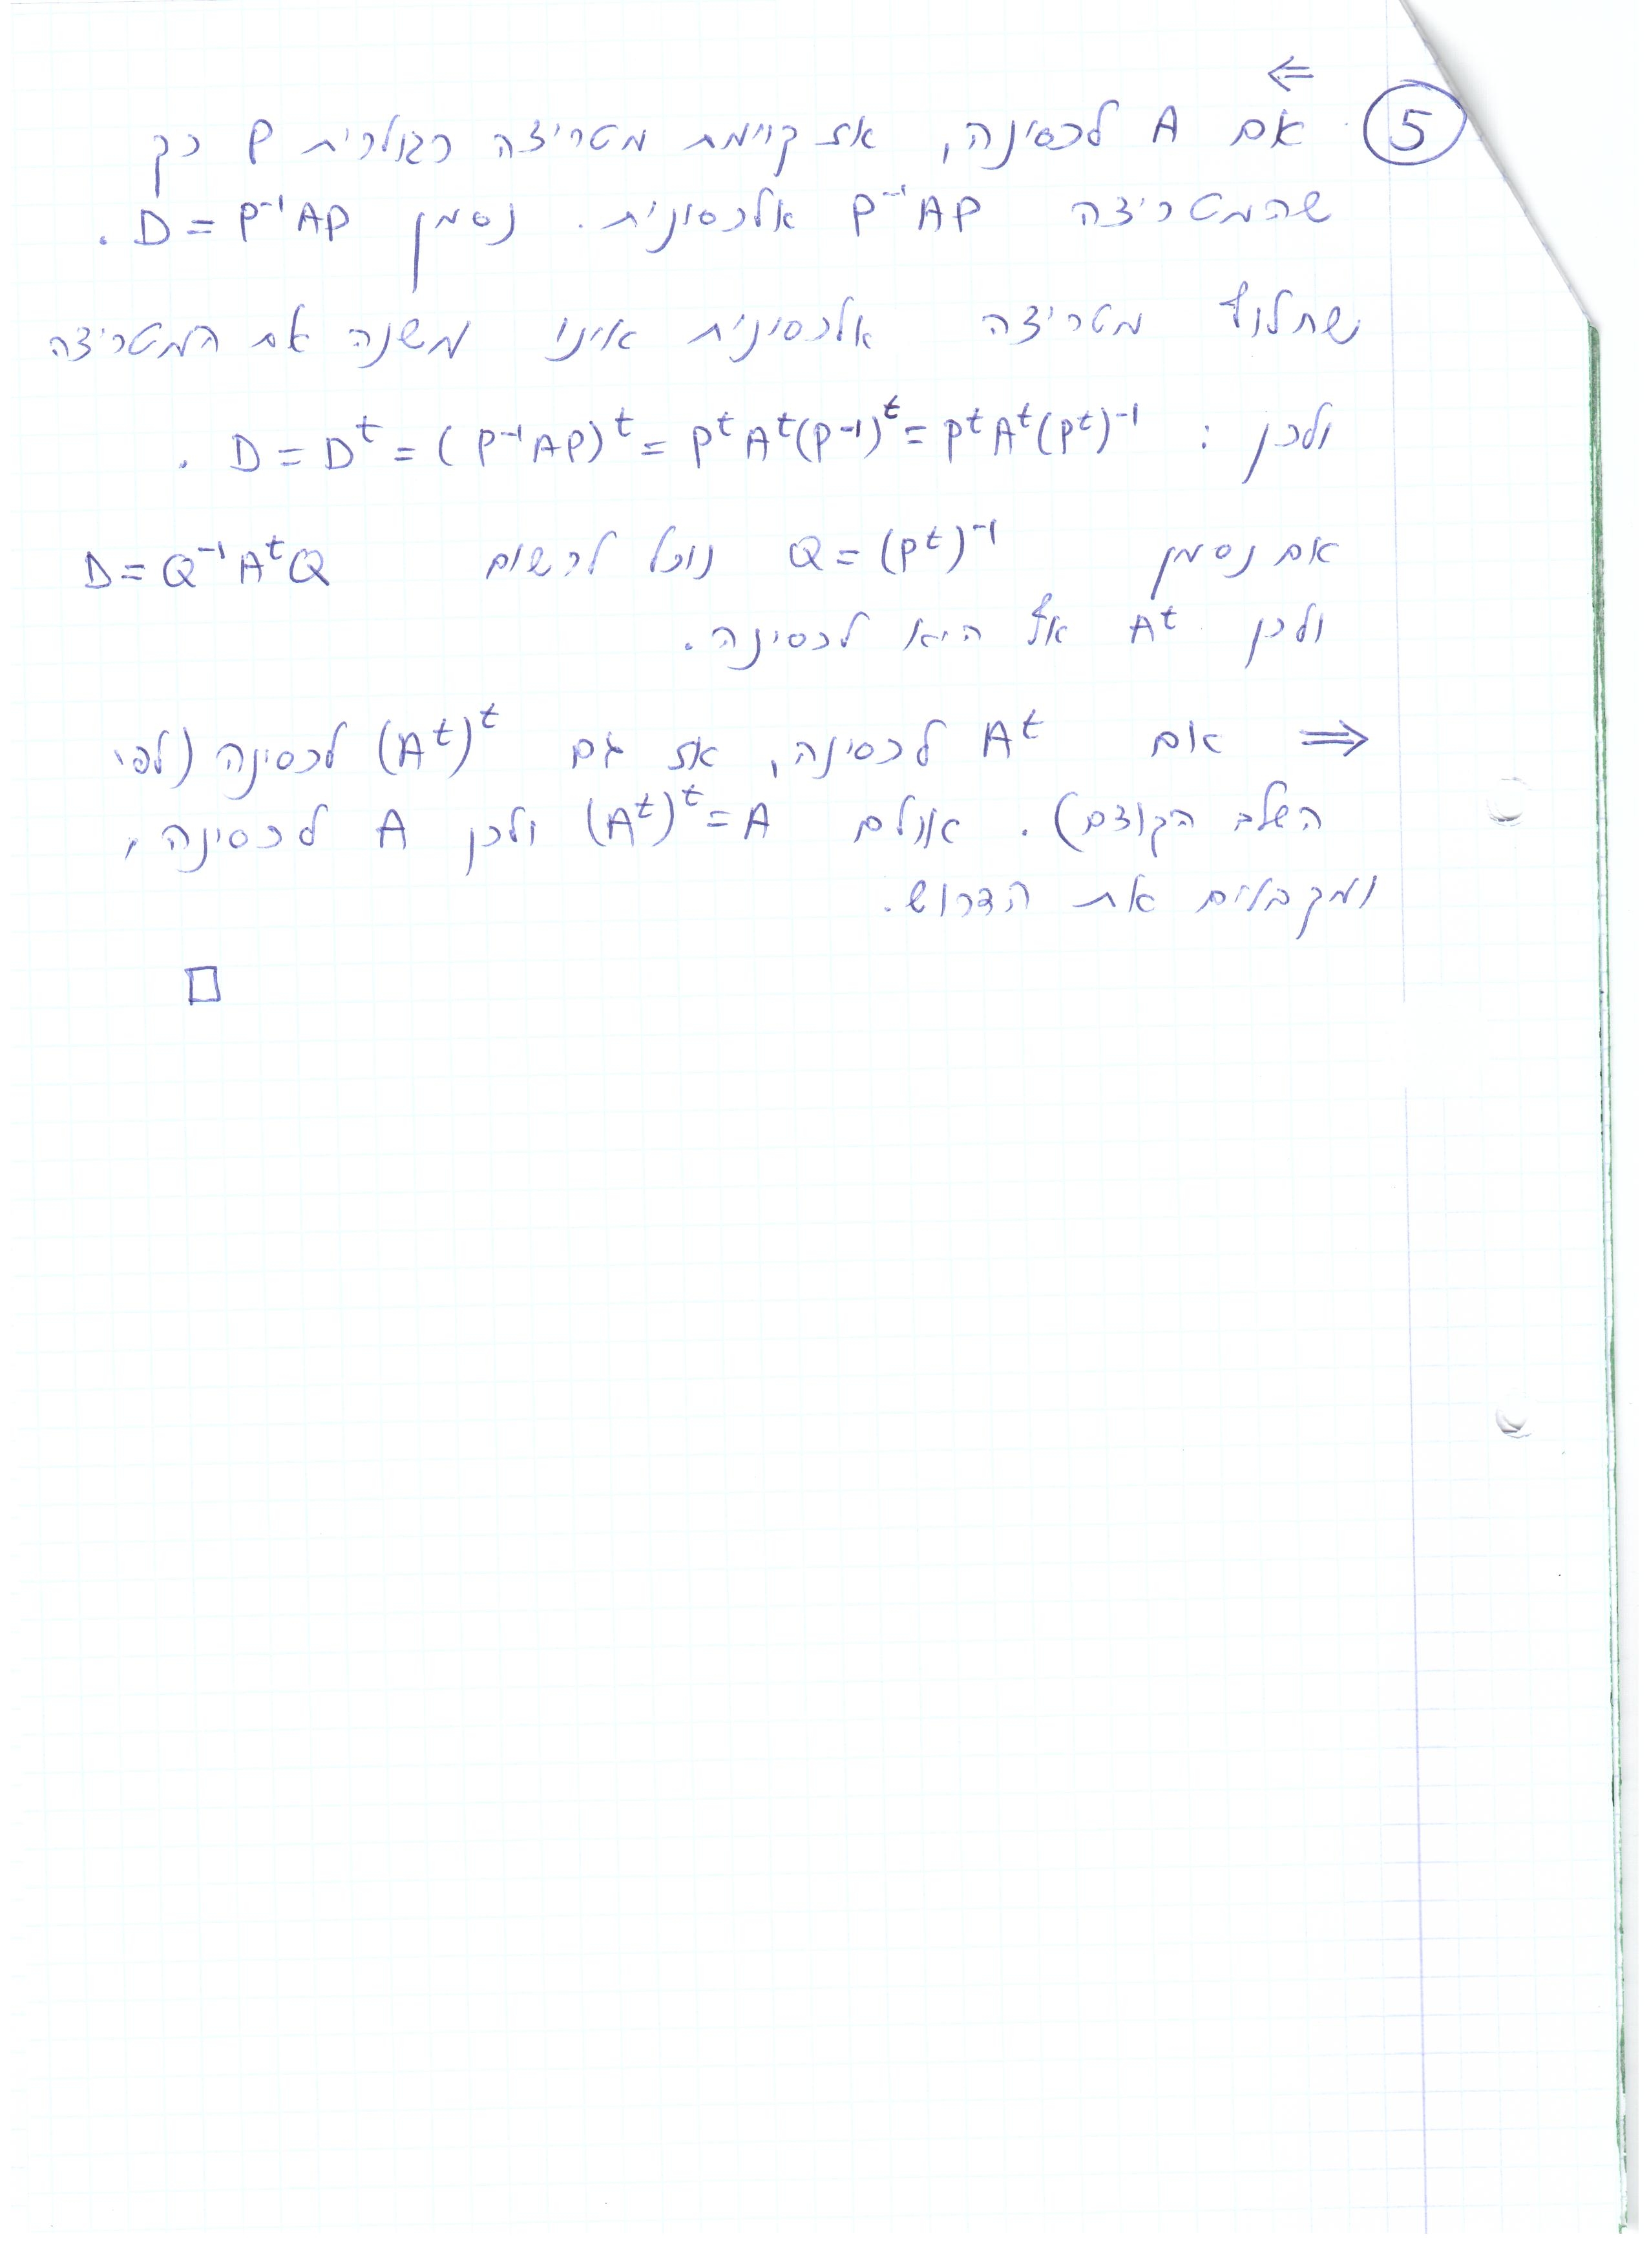 ⇐
⑤ אם A לכסינה, אז קיימת מטריצה רגולרית P כך
שהמטריצה P⁻¹AP אלכסונית. נסמן D = P⁻¹AP.
שחלוף מטריצה אלכסונית אינו משנה את המטריצה
ולכן: D = Dᵗ = (P⁻¹AP)ᵗ = PᵗAᵗ(P⁻¹)ᵗ = PᵗAᵗ(Pᵗ)⁻¹.
אם נסמן Q = (Pᵗ)⁻¹ נוכל לרשום D = Q⁻¹AᵗQ
ולכן Aᵗ אף היא לכסינה.
⇒ אם Aᵗ לכסינה, אז גם (Aᵗ)ᵗ לכסינה (לפי
השלב הקודם). אולם (Aᵗ)ᵗ = A ולכן A לכסינה,
ומקבלים את הדרוש.
□